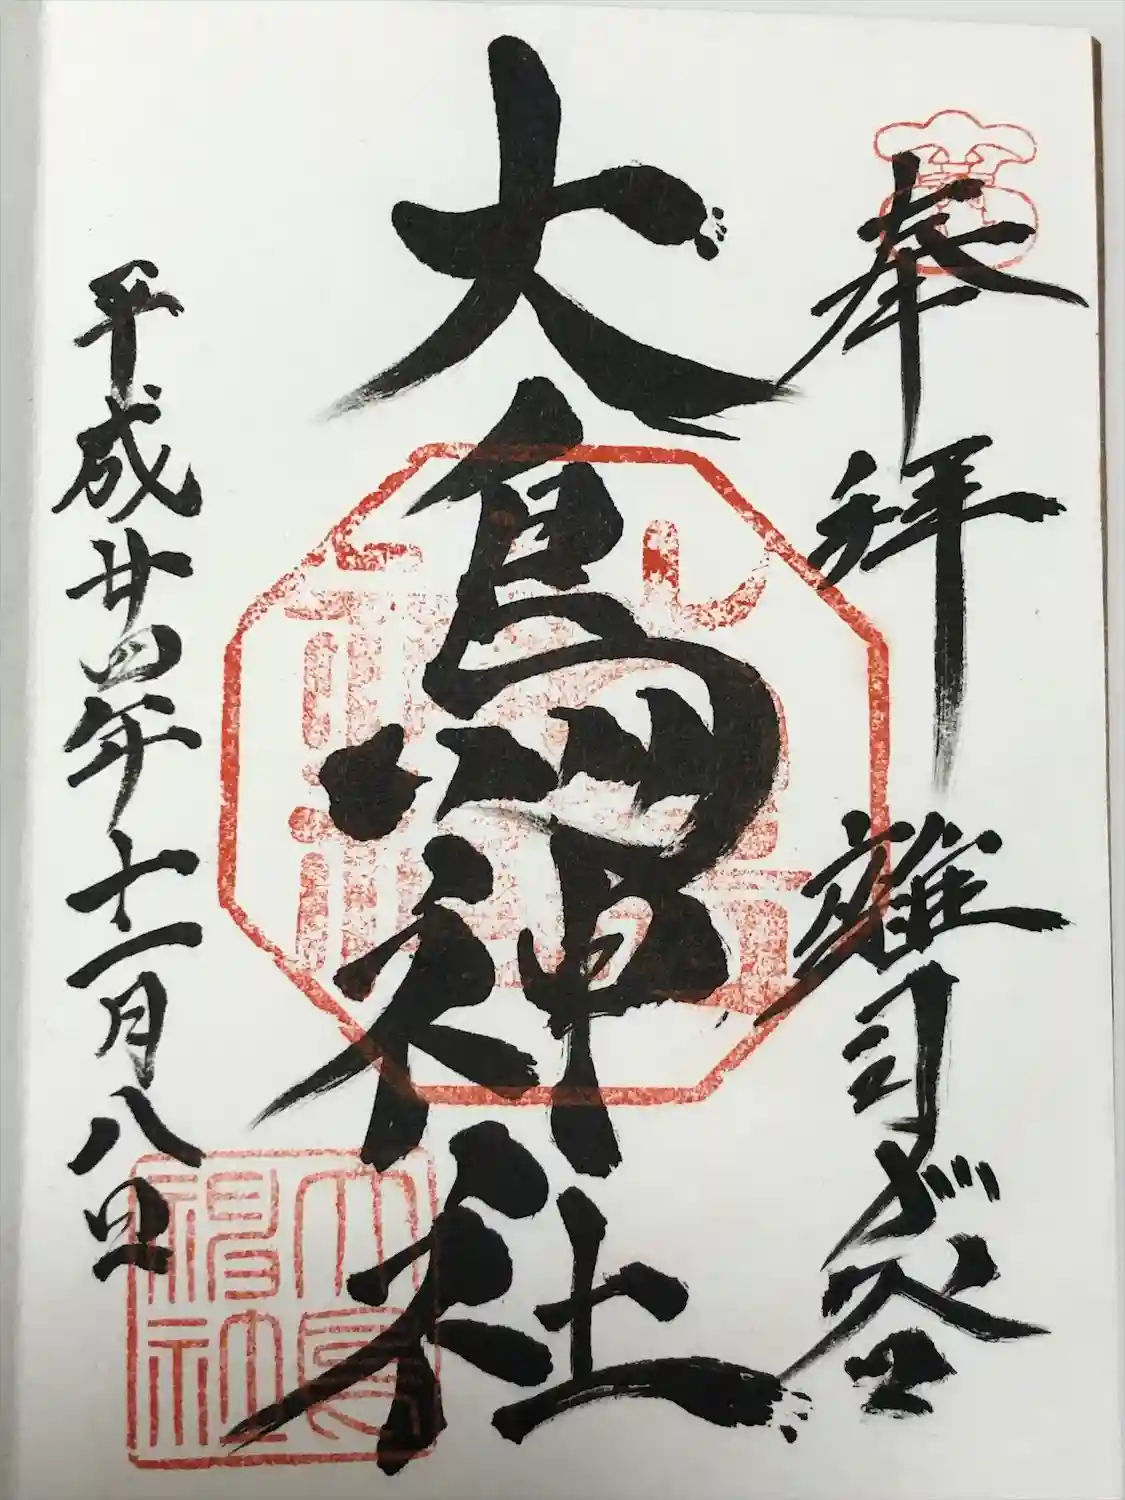 奉拝 雑司が谷
大鳥神社
平成廿四年十一月八日